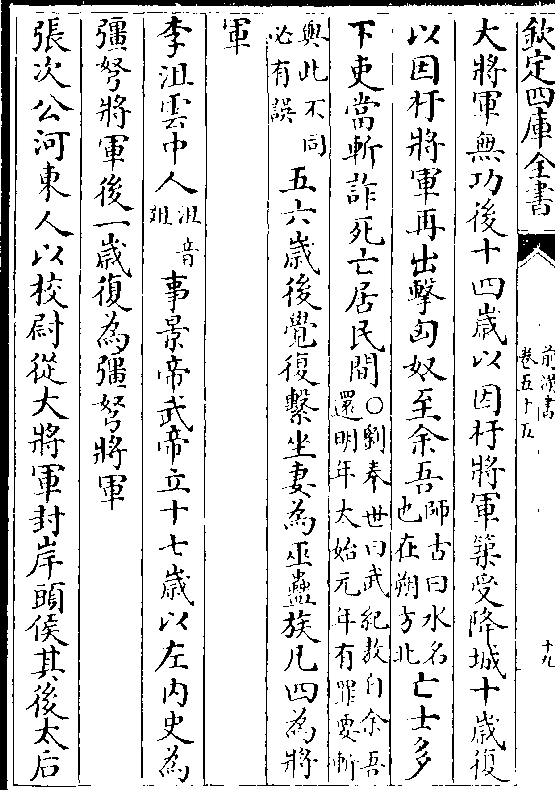 欽定四庫全書
前漢書
卷五十五
十九
大將軍無功後十四歲以因杅將軍築受降城十歲復
以因杅將軍再出擊匈奴至余吾師古曰水名也在朔方北亡士多
下吏當斬詐死亡居民間○劉奉世曰武紀敖自余吾還明年大始元年有罪要斬
與此不同必有誤五六歲後覺復繫坐妻為巫蠱族凡四為將
軍
李沮雲中人沮音俎事景帝武帝立十七歲以左内史為
彊弩將軍後一歲復為彊弩將軍
張次公河東人以校尉從大將軍封岸頭侯其後太后